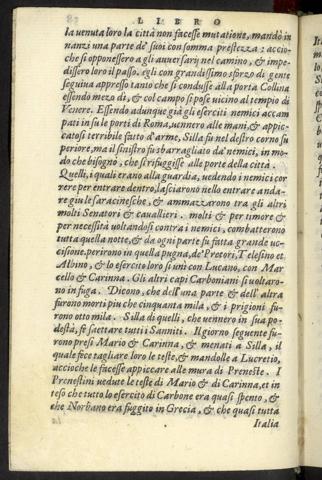 LIBRO
la venuta loro la città non facesse mutatione, mandò in
nanzi una parte de' suoi con somma prestezza: accio-
che si opponessero a gli auuersarij nel camino, & impe-
dissero loro il passo. egli con grandissimo sforzo di gente
seguiua appresso tanto che si condusse alla porta Collina
essendo mezo dì, & col campo si pose uicino al tempio di
Venere. Essendo adunque già gli eserciti nemici accam
pati in su le porti di Roma, uennero alle mani, & appic-
catosi terribile fatto d'arme, Silla fù nel destro corno su
periore, ma il sinistro fù sbarragliato da' nemici, in mo-
do che bisognò, che si rifuggisse alle porte della città.
Quelli, i quali erano alla guardia, uedendo i nemici cor
rere per entrare dentro, lasciarono nello entrare anda-
re giu le saracinesche, & ammazzarono tra gli altri
molti Senatori & cauallieri. molti & per timore &
per necessità uoltandosi contra i nemici, combatterono
tutta quella notte, & da ogni parte fu fatta grande uc-
cisione. perirono in quella pugna, de' Pretori, Telesino et
Albino, & lo esercito loro si unì con Lucano, con Mar
cello & Carinna. Gli altri capi Carboniani si uoltaro-
no in fuga. Dicono, che dell' una parte & dell' altra
furono morti piu che cinquanta mila, & i prigioni fu-
rono otto mila. Silla di quelli, che uennero in sua po-
destà, fè saettare tutti i Sanniti. Il giorno seguente fu-
rono presi Mario & Carinna, & menati a Silla, il
quale fece tagliare loro le teste, & mandolle a Lucretio,
accioche le facesse appiccare alle mura di Preneste. I
Prenestini uedute le teste di Mario & di Carinna, et in
teso che tutto lo esercito di Carbone era quasi spento, &
che Norbano era fuggito in Grecia, & che quasi tutta
Italia